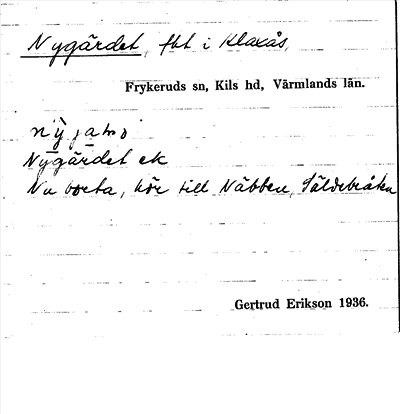 Nygärdet, fbt i Klaxås,
Frykeruds sn, Kils hd, Värmlands län.
Nygärdet ek
Nu borta, hör till Näbben,
Gertrud Erikson 1936.